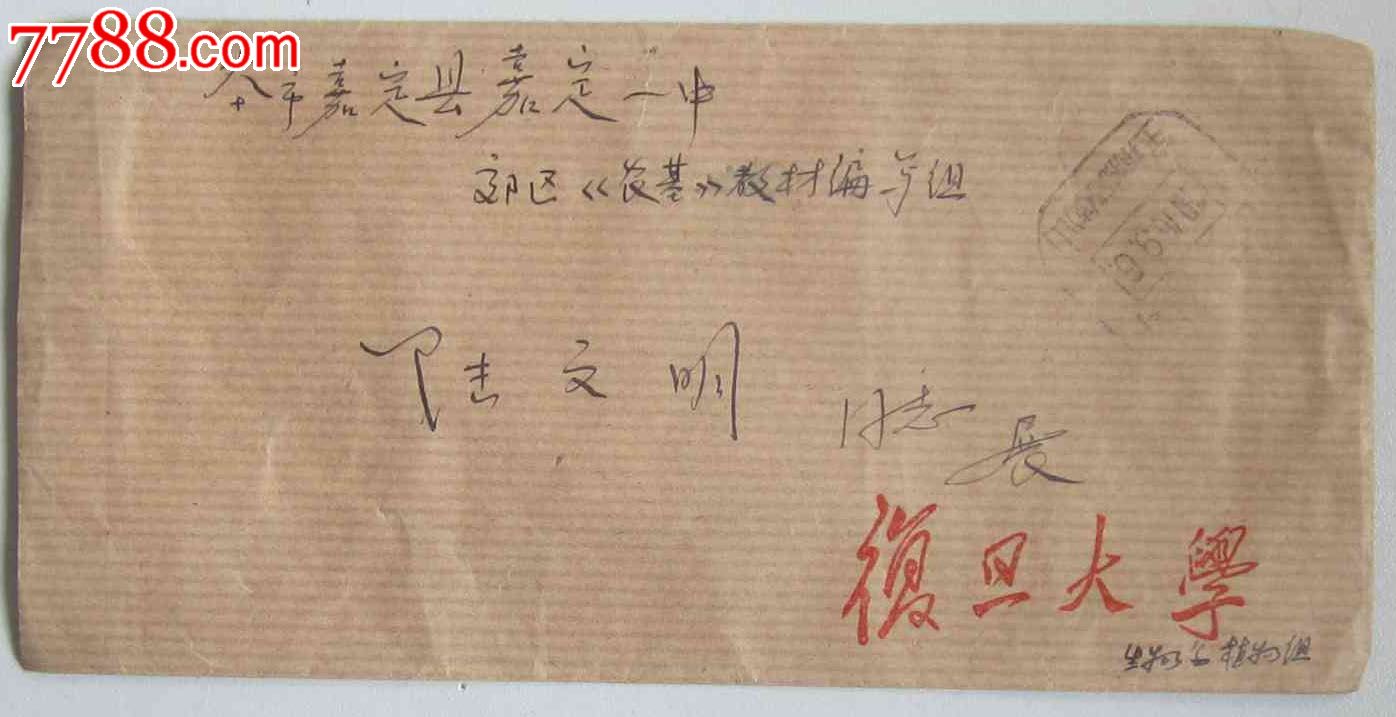 7788.com
本市嘉定县嘉定一中
郊区《农基》教材编写组
陆文明 同志 展
復旦大學
生物系植物组